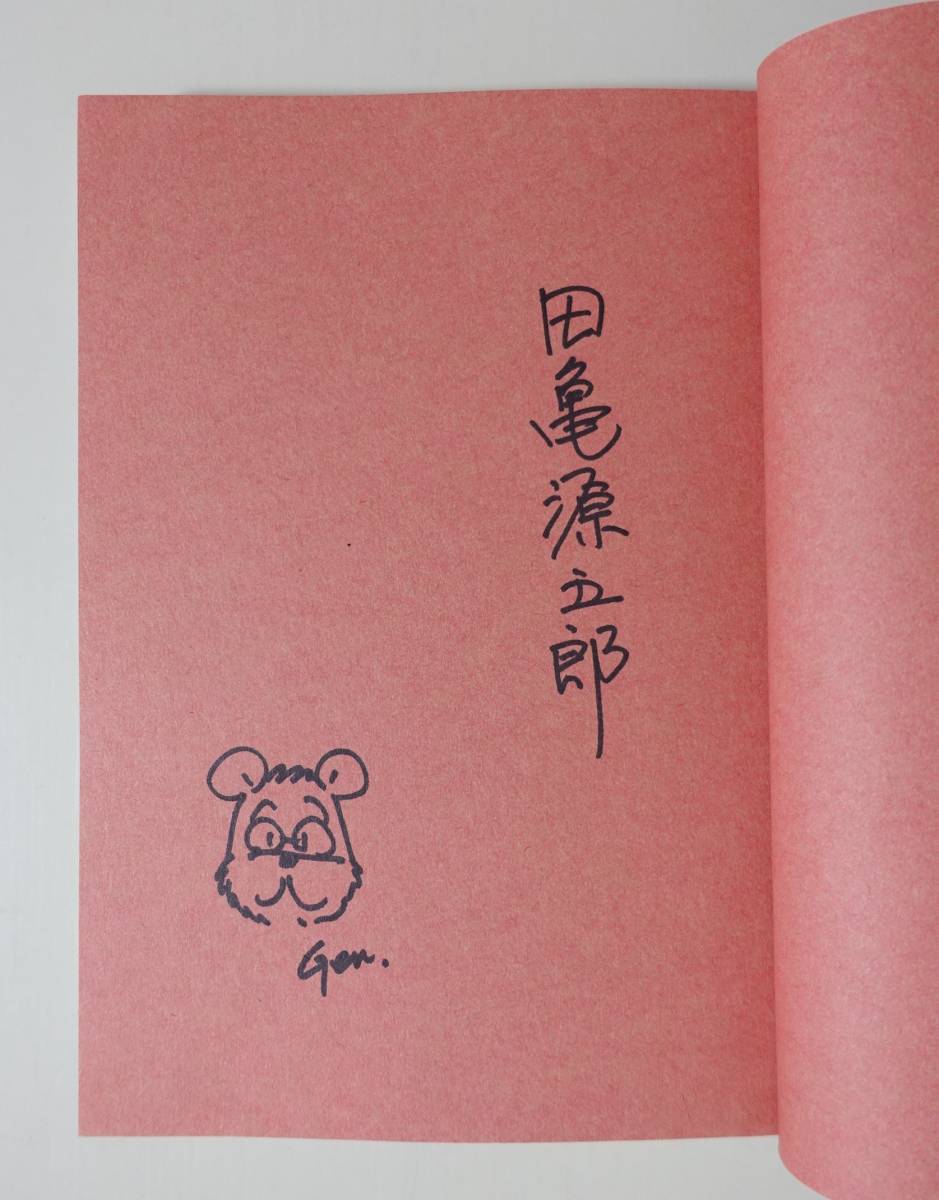 田亀源五郎
Gen.